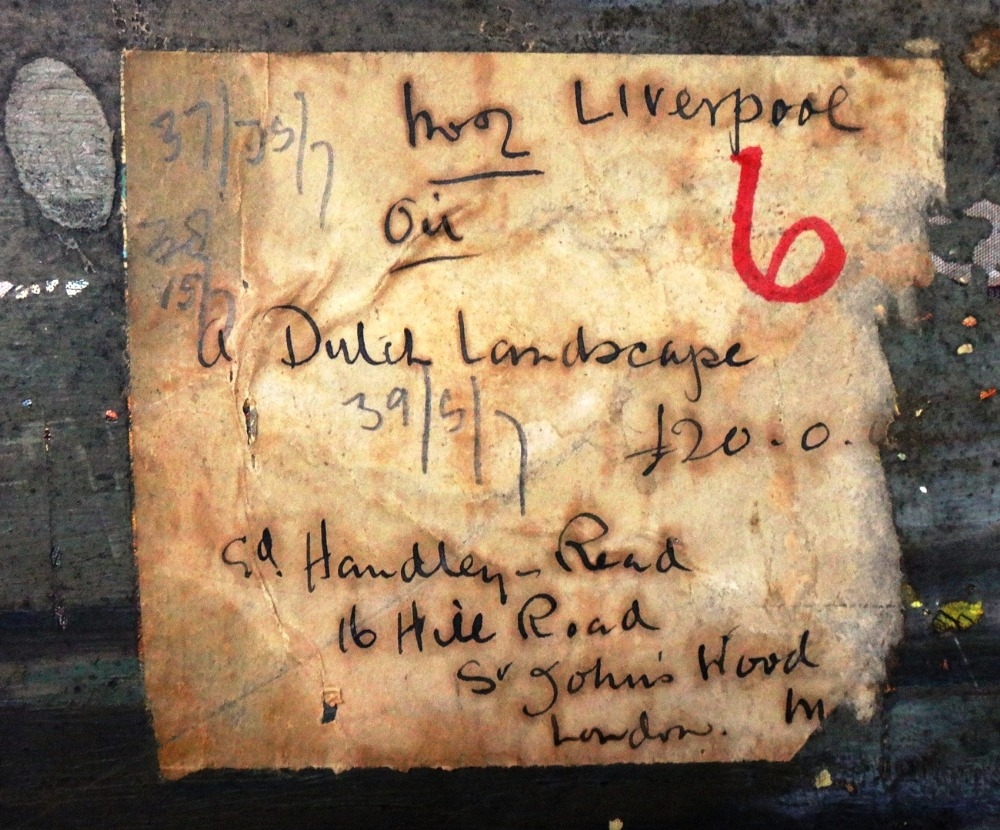 Liverpool
6
Oil
A Dutch Landscape
39/5/7
£20.0.
Ed. Handley-Read
16 Hill Road
St John's Wood
London.